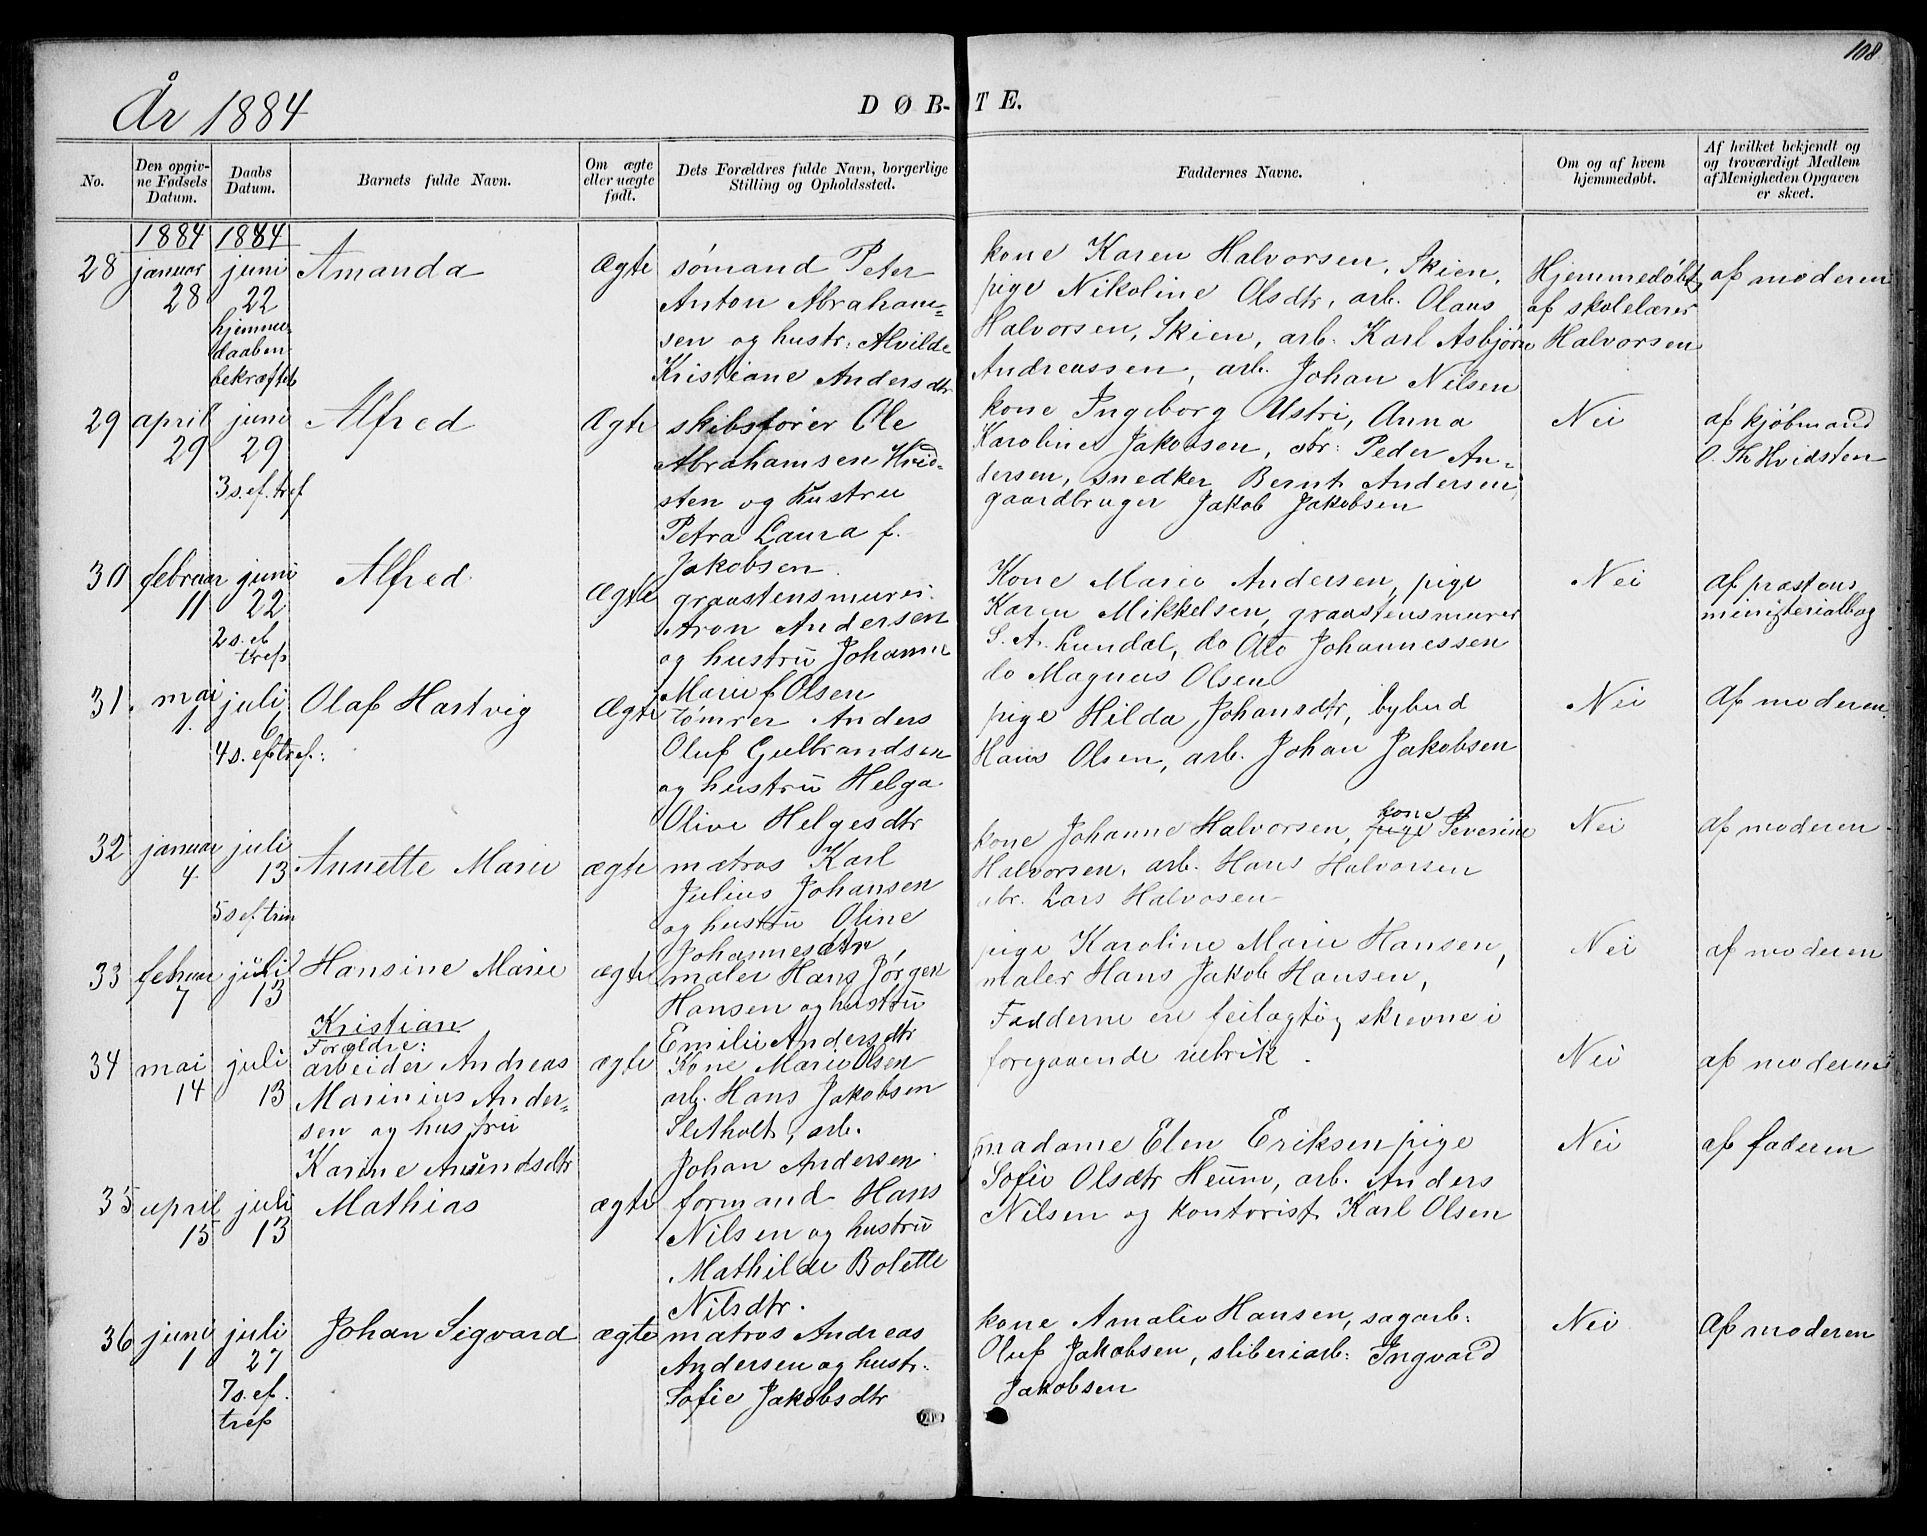 108
År 1884
DØB-TE.
No.
Den opgiv-
ne Fødsels
Datum.
Daabs
Datum.
Barnets fulde Navn.
Om ægte
eller uægte
født.
Dets Forældres fulde Navn, borgerlige
Stilling og Opholdssted.
Faddernes Navne.
Om og af hvem
hjemmedøbt.
Af hvilket bekjendt og
og troværdigt Medlem
af Menigheden Opgaven
er skeet.
1884 1884
28 januar juni Amanda Ægte sømand Peter
28 22
hjemme-
daaben
bekræftet
Anton Abraham-
sen og hustr: Alvilde
Kristiane Andersdtr
kone Karen Halvorsen, Skien,
pige Nikoline Olsdtr, arb. Olaus
Halvorsen, Skien, arb. Karl Asbjørn
Andreassen, arb. Johan Nilsen
Hjemmedøbt
af skolelærer
Halvorsen
af moderen
29 april juni Alfred Ægte skibsfører Ole
29 29
3 s. ef. tref
Abrahamsen Hvid-
sten og Hustru
Petra Laura f.
Jakobsen
kone Ingeborg Ustri, Anna
Karoline Jakobsen, Peder An-
dersen, snedker Bernt Andersen,
gaardbruger Jakob Jakobsen
Nei
af kjøbmand
O. Th Hvidsten
30 februar juni Alfred Ægte graastensmurer
11 22
2 s. ef
tref
Aron Andersen
og hustru Johanne
Marie f Olsen
Kone Marie Andersen, pige
Karen Mikkelsen, graastensmurer
S. A. Lundal, do Johannessen
do Magnus Olsen
Nei
af præstens
ministerialbog
31. mai juli Olaf Hartvig Ægte tømrer Anders
1. 6
4 s. ef tref:
Oluf Gulbrandsen
og hustru Helga
Olive Helgesdtr
pige Hilda Johansdtr, bybud
Hans Olsen, arb. Johan Jakobsen
Nei
af moderen.
32 januar juli Annette Marie ægte matros Karl
4 13
5 s ef. trin
Julius Johansen
og hustru Oline
Johannesdtr
kone Johanne Halvorsen, kone pige Severine
Halvorsen, arb. Hans Halvorsen
Lars Halvosen
Nei
af moderen
33 febuar juli Hansine Marie ægte maler Hans Jørgen
7 13
Hansen og hustru
Emilie Andersdtr
pige Karoline Marie Hansen,
maler Hans Jakob Hansen,
Nei
af moderen
Kristian
Forældre:
34 mai juli arbeider Andreas ægte Kone Marie Olsen
14 13 Marinius Ander-
sen og hustru
Karine Amundsdtr
arb. Hans Jakobsen
Sletholt, arb.
Johan Andersen
Fadderne ere feilagtig skrevne i
foregaaende rubrik.
Nei
af moderen
35 april juli Mathias ægte formand Hans
15 13
Nilsen og hustru
Mathilde Bolette
Nilsdtr.
madame Elen Eriksen pige
Sofie Olsdtr Heum, arb. Anders
Nilsen og kontorist Karl Olsen
Nei
af faderen
36 juni juli Johan Sigvard ægte matros Andreas
1 27
7 s. ef.
tref
Andersen og hustr.
Sofie Jakobsdtr
kone Amalie Hansen, sagarb:
Oluf Jakobsen, sliberiarb: Ingvard
Jakobsen
Nei
af moderen